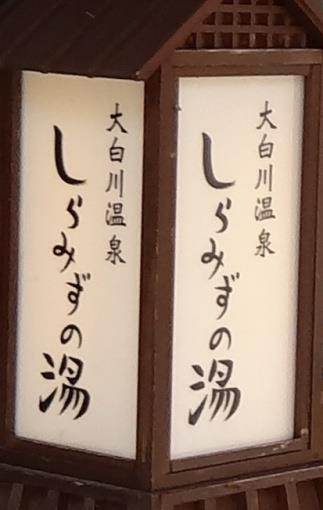 大白川温泉
しらみずの湯
大白川温泉
しらみずの湯